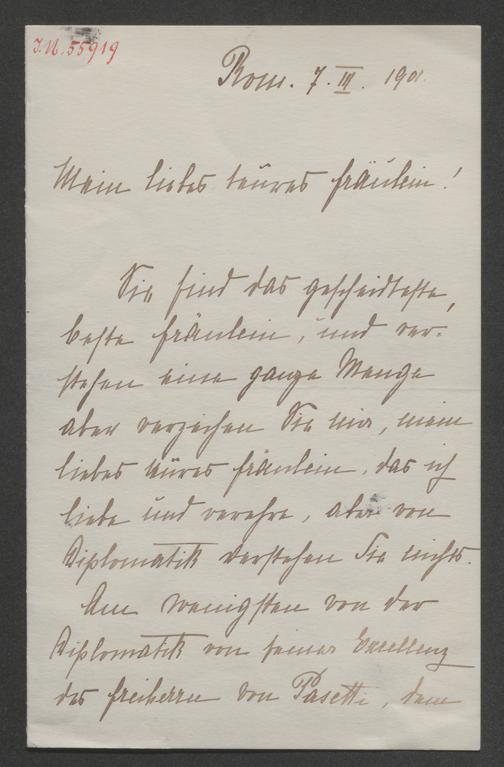 I.N. 55919
Rom. 7. III. 1901.
Mein liebes teures Fräulein!
Sie sind das gescheidteste,
beste Fräulein, und ver-
stehen eine ganze Menge
aber verzeihen Sie mir, mein
liebes teures Fräulein, das ich
liebe und verehre, aber von
Diplomatik verstehen Sie nichts.
Am wenigsten von der
Diplomatik von seiner Excellenz
des Freiherrn von Pasetti, dem